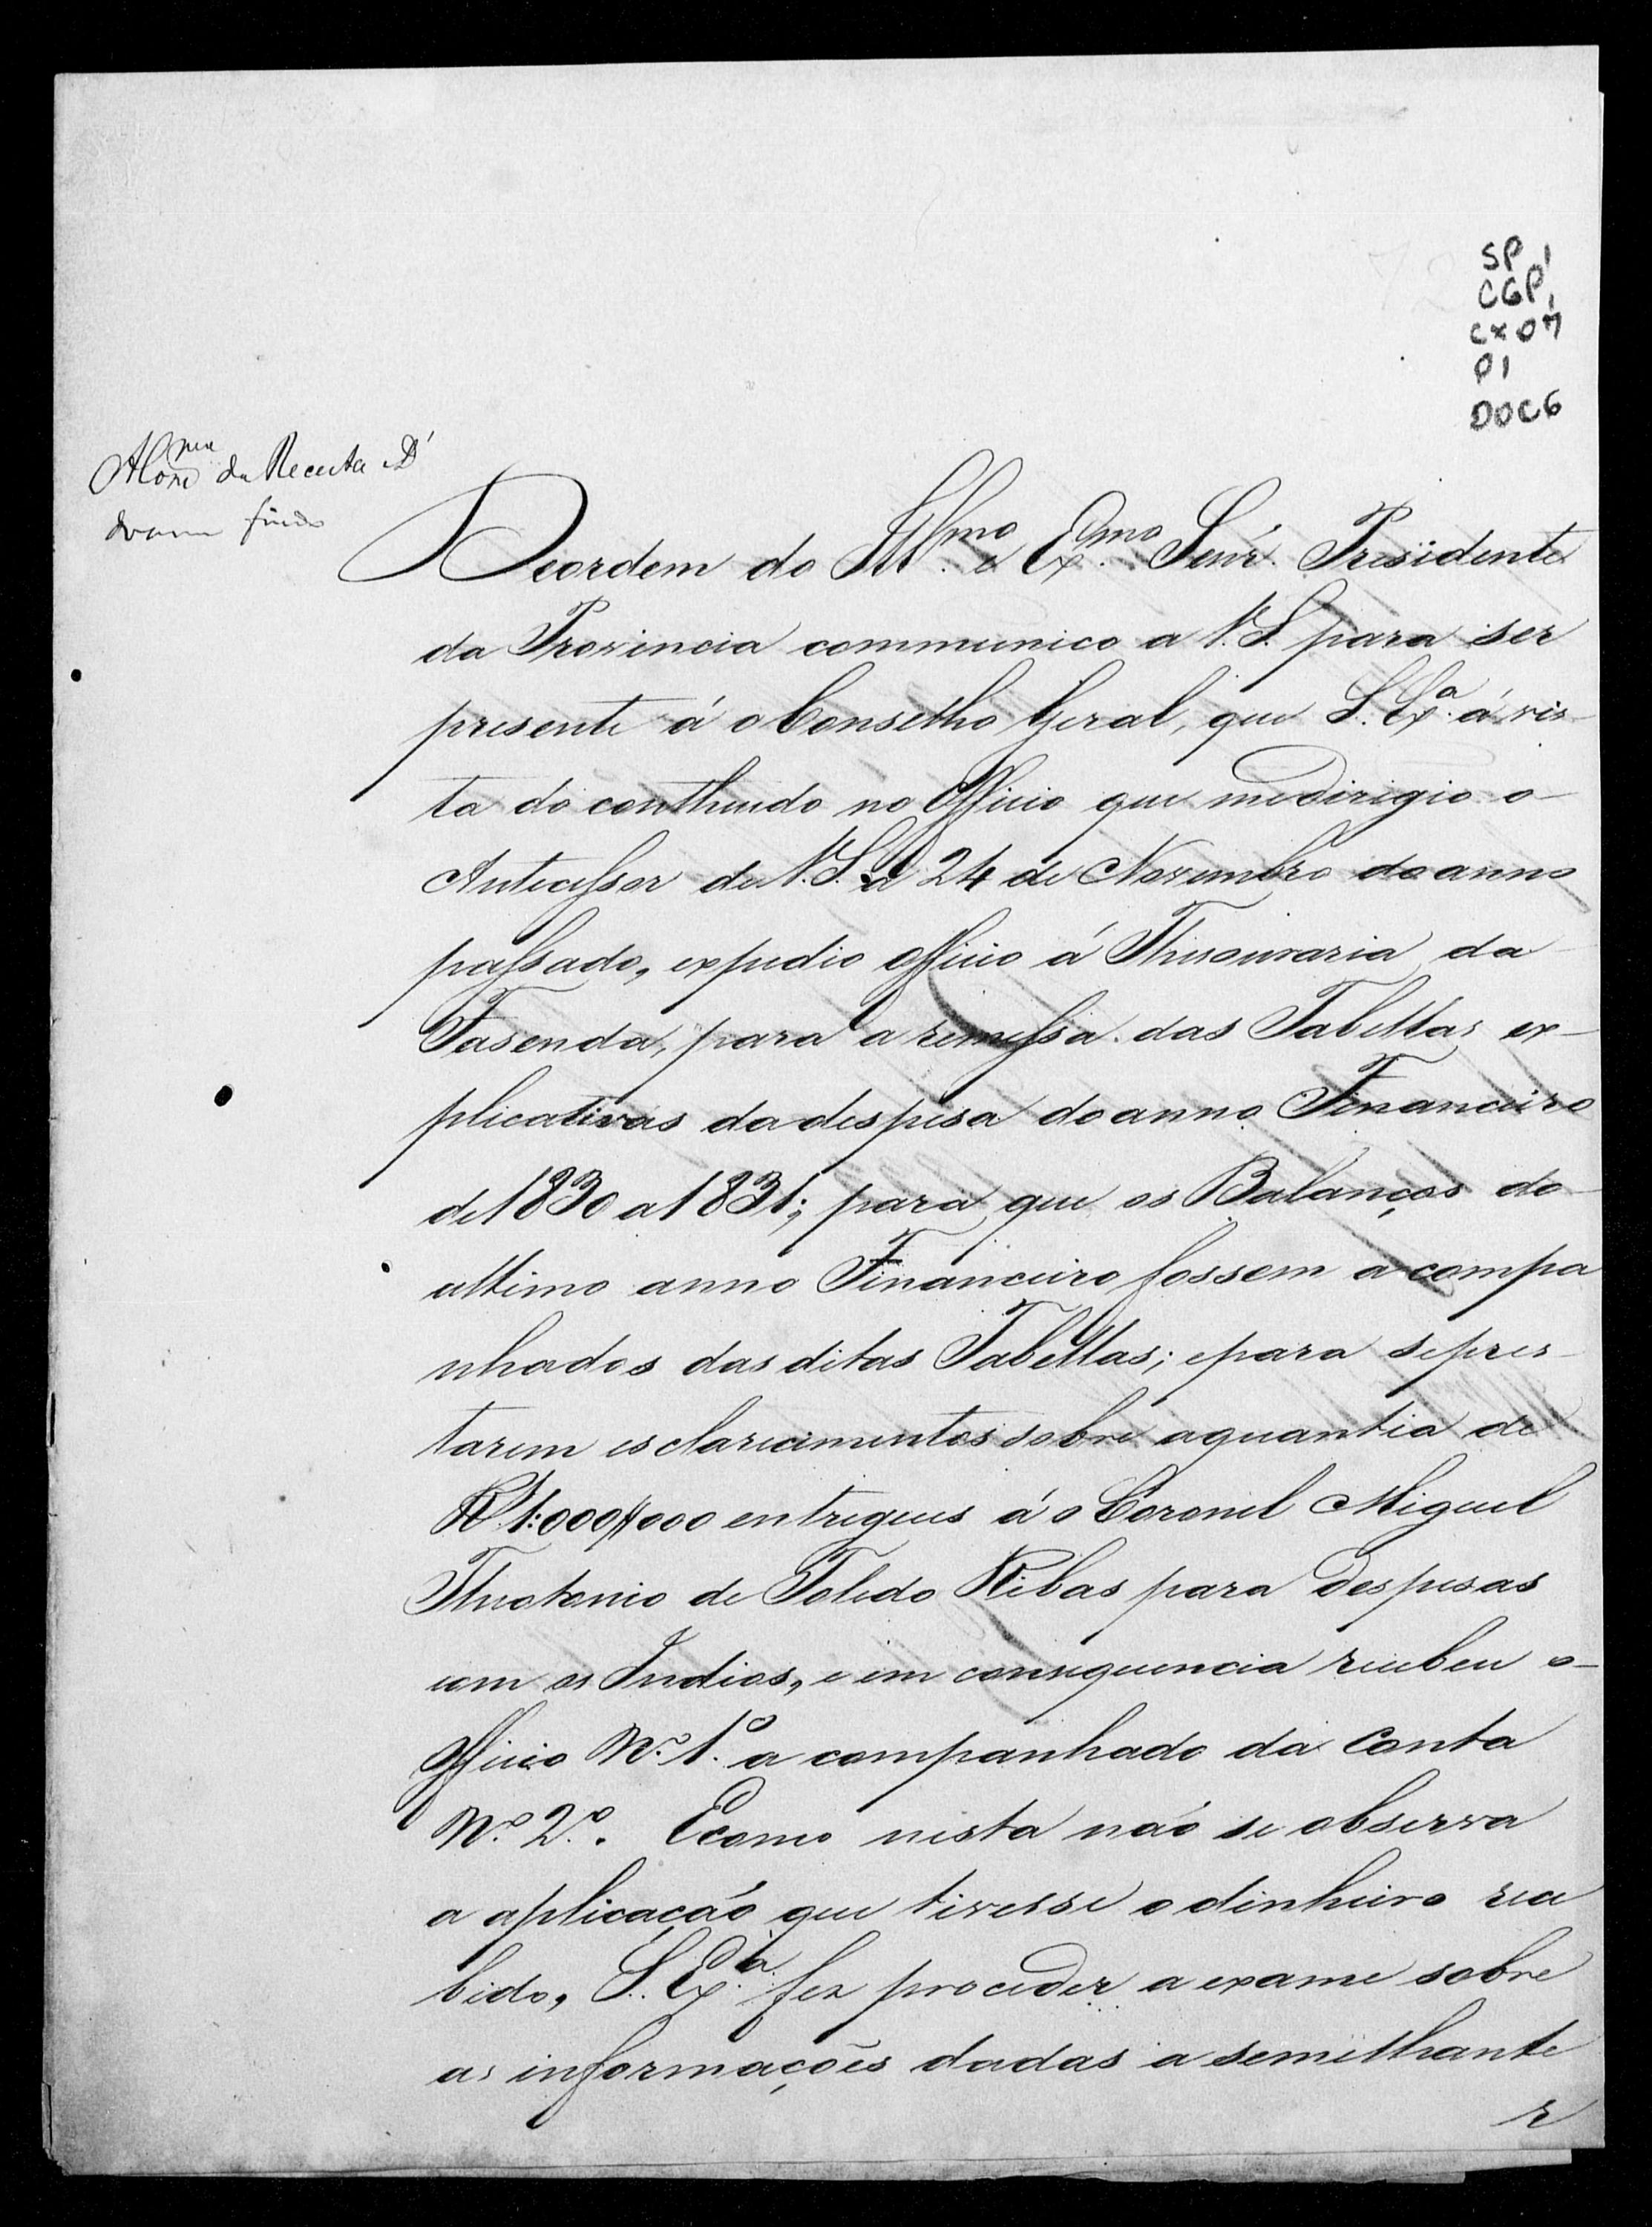 SP
CGP,
CX07
P1
DOC6
da Receita e D
findo
Deordem do Illmo. e Exmo. Senr. Presidente
da Provincia communico a V.S. para ser
presente á o Conselho Geral, que S. Exa. á vis-
ta do contheudo no Officio que medirigio o
Antecessor de V.S. a 24 de Novembro do anno
passado, expedio officio á Thesouraria da
Fasenda, para a remessa das Tabellas ex-
plicativas da despesa do anno Financeiro
de 1830 a 1831; para que os Balanços do
ultimo anno Financeiro fossem a compa
nhados das ditas Tabellas; epara sepres-
tarem esclarecimentos sobre aquantia de
R 1:000$000 entregues á o Coronel Miguel
Theotonio de Toledo Ribas para despesas
com os Indios, e em consequencia recebeu o
Officio No. 1o. a companhado da Conta
No. 2o. Ecomo nesta não se observa
a aplicação que tivesse o dinheiro rece
bido, S. Exa. fez proceder a exame sobre
as informações dadas a semilhante
r